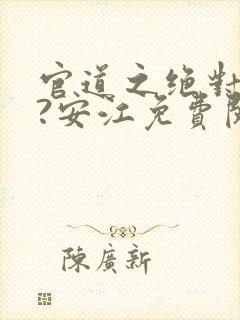 官道之絶對
?安江免費閱
陳廣新